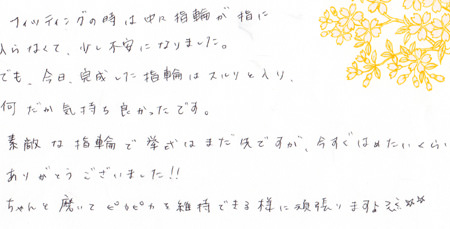 フィッティングの時は中々指輪が指に
入らなくて、少し不安になりました。
でも、今日、完成した指輪はスルリと入り、
何だか気持ち良かったです。
素敵な指輪で挙式はまだ先ですが、今すぐはめたいくらい
ありがとうございました!!
ちゃんと磨いてピカピカを維持できる様に頑張りますよ